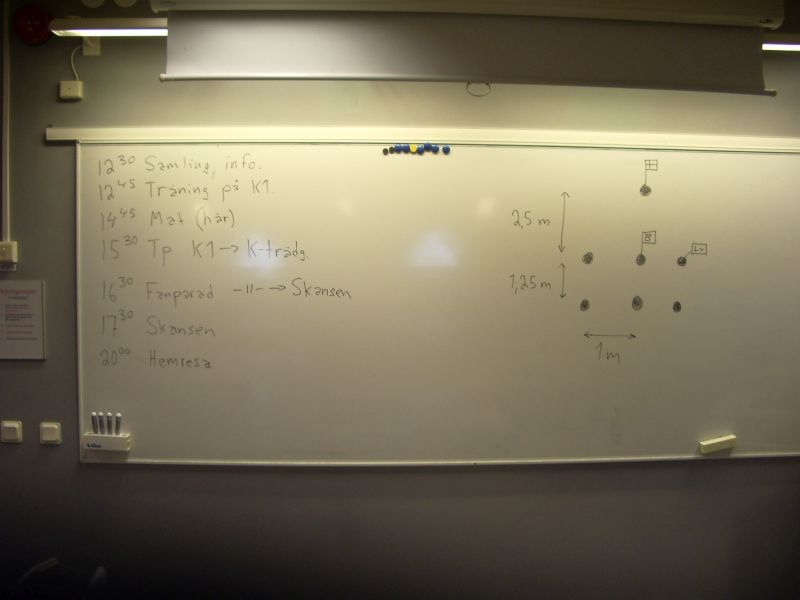 12³⁰ Samling, info.
12⁴⁵ Träning på K1.
14⁴⁵ Mat (här)
15³⁰ Tp K1 → K-trädg.
16³⁰ Fanparad -||- → Skansen
17³⁰ Skansen
20⁰⁰ Hemresa
2,5 m
B
Lv
1,25 m
1 m